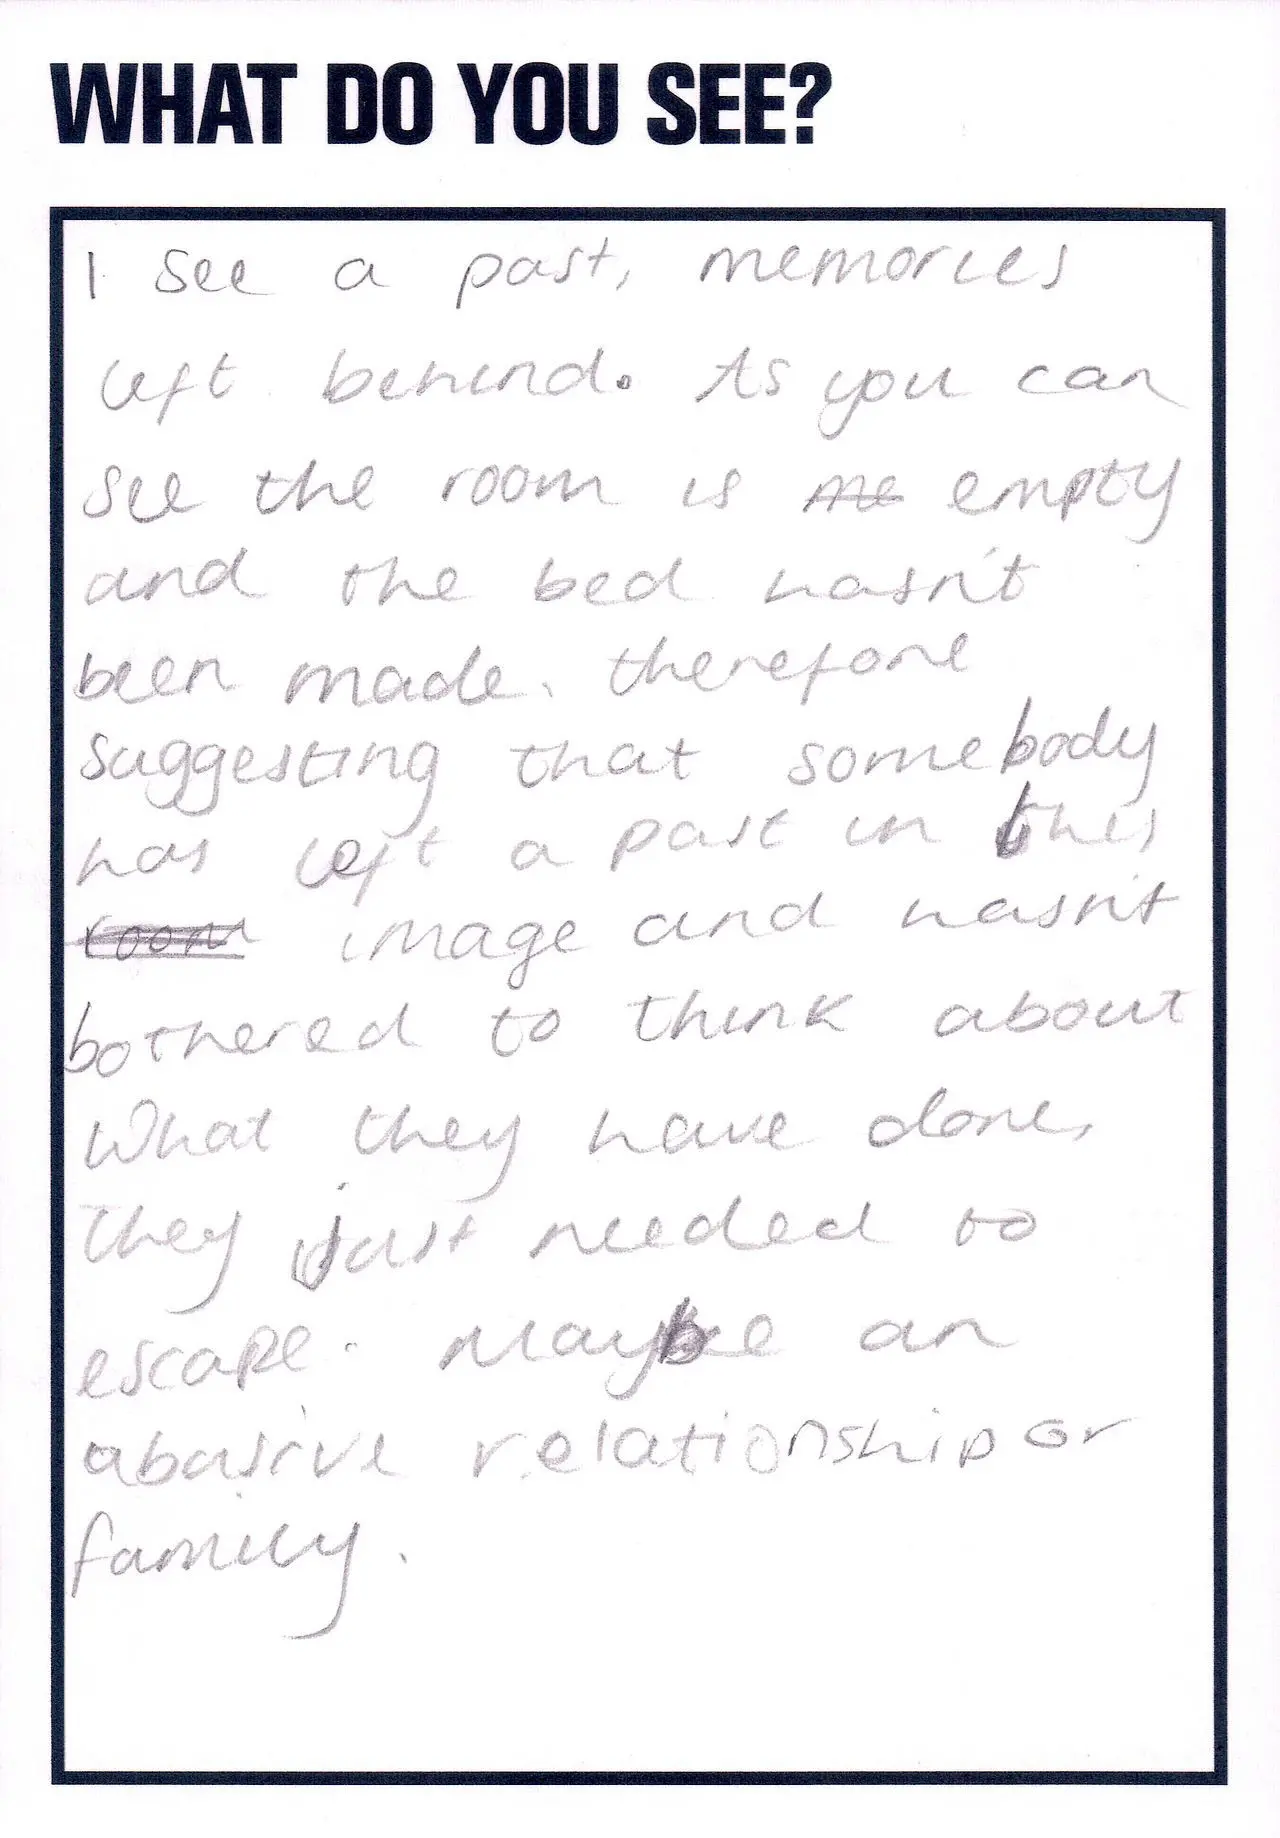 WHAT DO YOU SEE?
I see a past, memories
left behind. As you can
see the room is me empty
and the bed hasn't
been made. therefore
suggesting that somebody
has left a past in this
room image and hasn't
bothered to think about
what they have done,
they just needed to
escape. Maybe an
abusive relationship or
family.